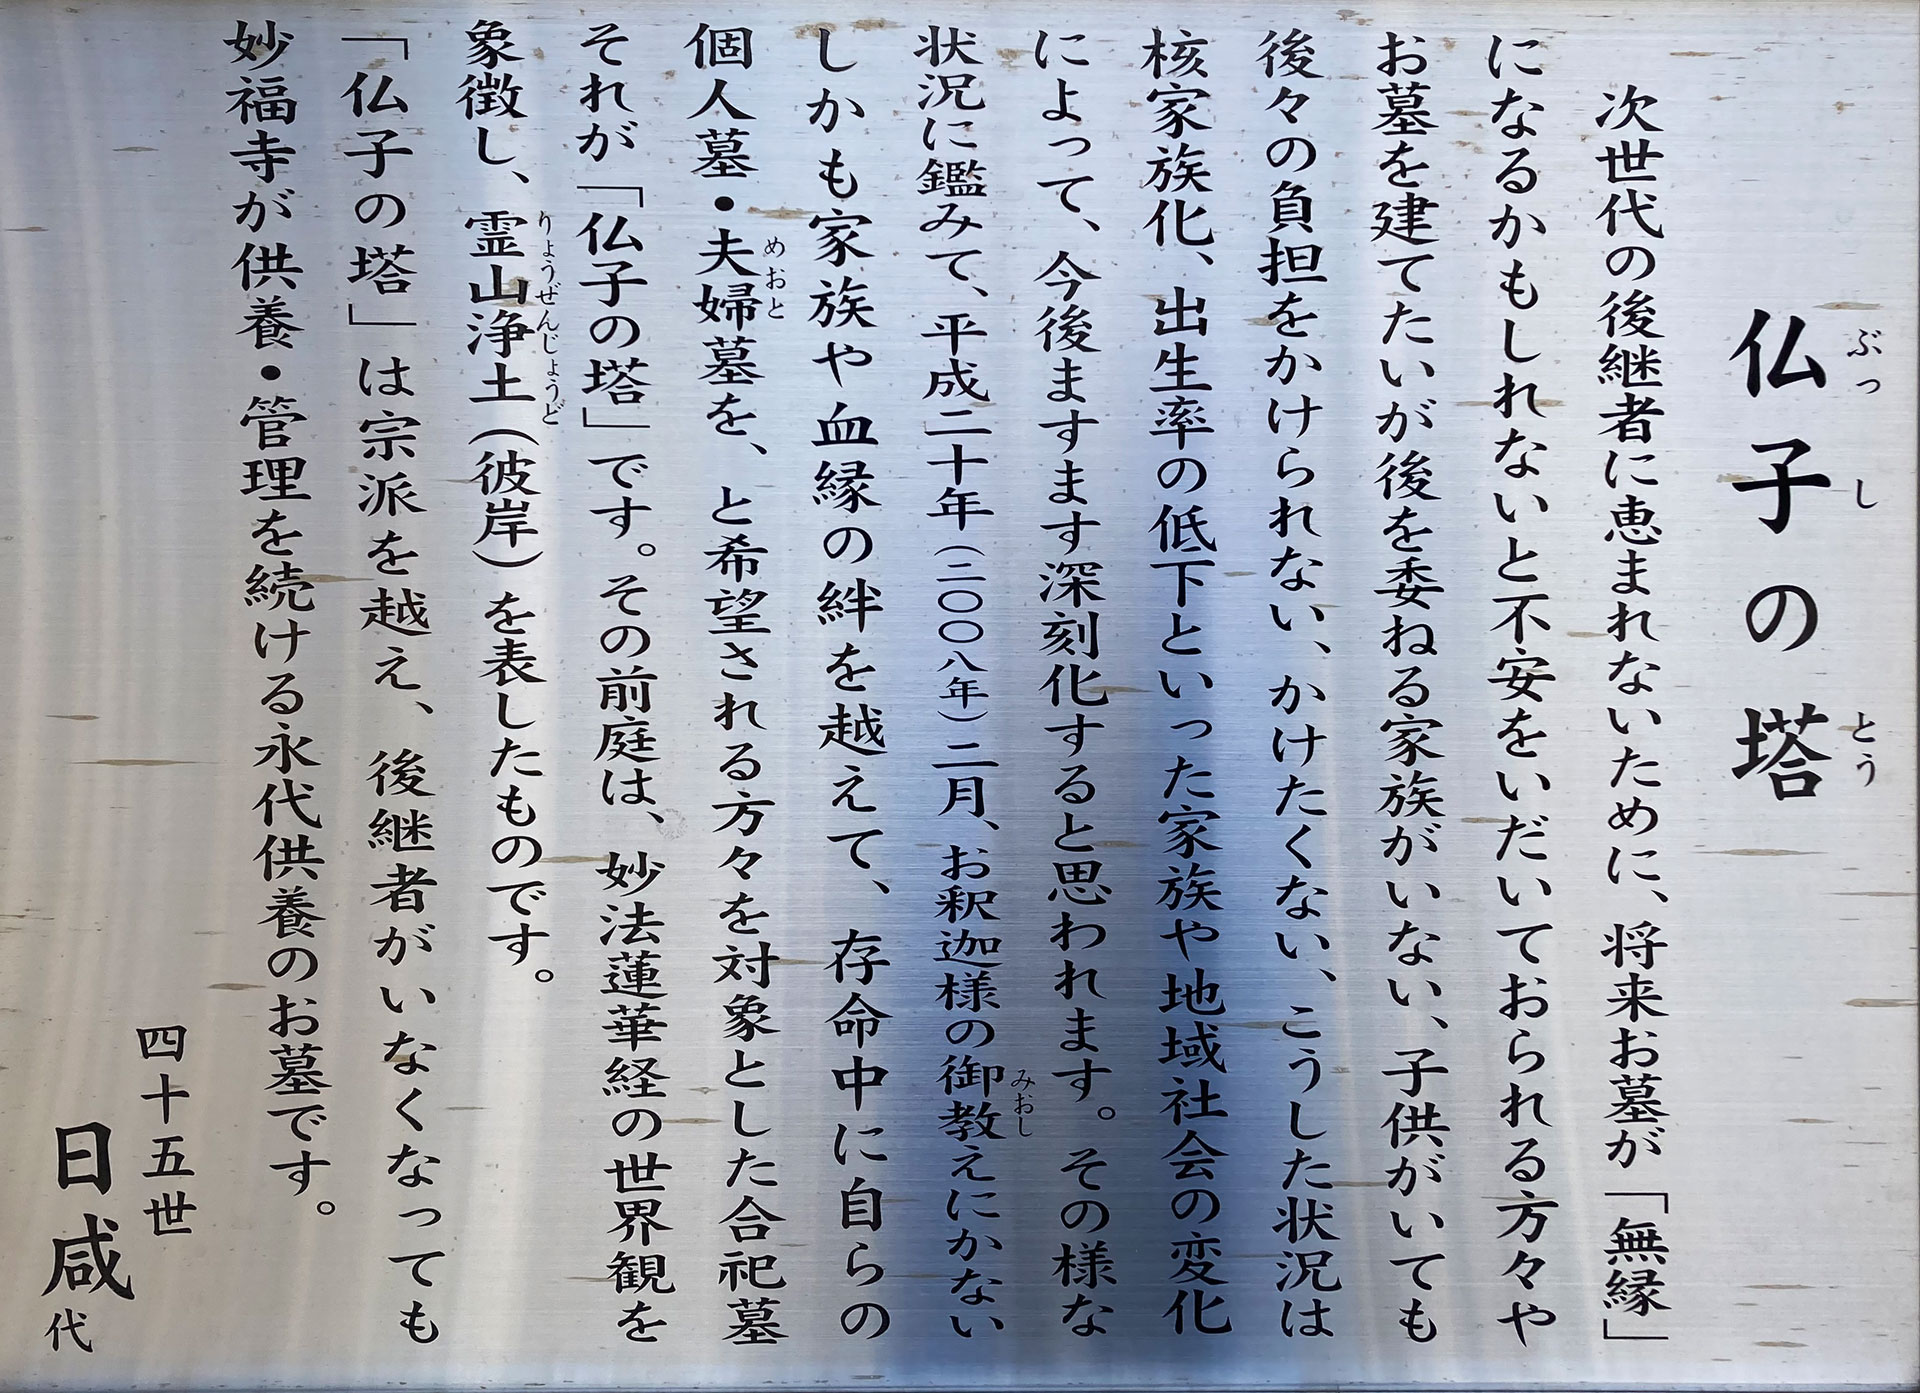 仏子の塔
次世代の後継者に恵まれないために、将来お墓が「無縁」
になるかもしれないと不安をいだいておられる方々や
お墓を建てたいが後を委ねる家族がいない、子供がいても
後々の負担をかけられない、かけたくない、こうした状況は
核家族化、出生率の低下といった家族や地域社会の変化
によって、今後ますます深刻化すると思われます。その様な
状況に鑑みて、平成二十年（二〇〇八年）二月、お釈迦様の御教えにかない
しかも家族や血縁の絆を越えて、存命中に自らの
個人墓・夫婦墓を、と希望される方々を対象とした合祀墓
それが「仏子の塔」です。その前庭は、妙法蓮華経の世界観を
象徴し、霊山浄土（彼岸）を表したものです。
「仏子の塔」は宗派を越え、後継者がいなくなっても
妙福寺が供養・管理を続ける永代供養のお墓です。
四十五世
日咸代